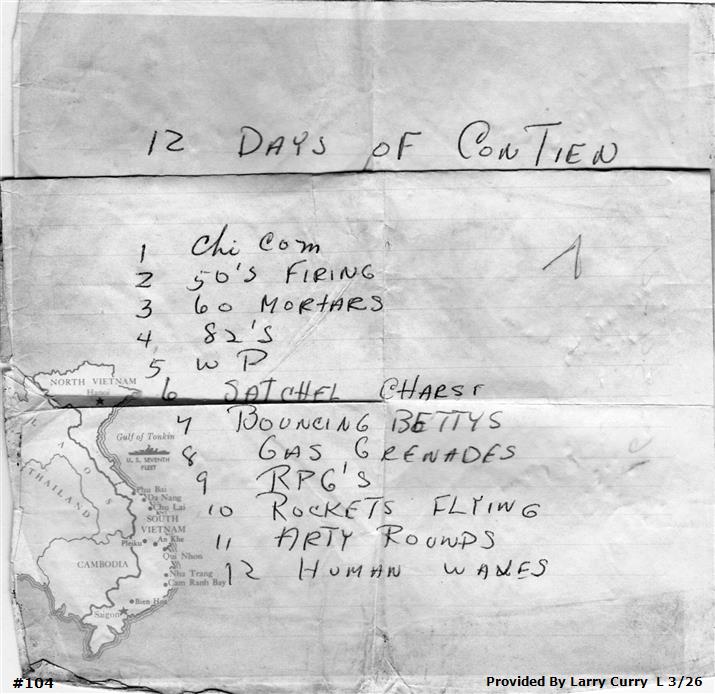 12 DAYS OF CON TIEN
1 Chi Com
2 50'S FIRING
3 60 MORTARS
4 82'S
5 W P
6 SATCHEL CHARSE
7 BOUNCING BETTYS
8 GAS GRENADES
9 RPG'S
10 ROCKETS FLYING
11 ARTY ROUNDS
12 HUMAN WAVES
NORTH VIETNAM
Hanoi
LAOS
Gulf of Tonkin
U. S. SEVENTH
FLEET
THAILAND
Phu Bai
Da Nang
Chu Lai
SOUTH
VIETNAM
Pleiku
An Khe
Qui Nhon
CAMBODIA
Nha Trang
Cam Ranh Bay
Bien Hoa
Saigon
#104
Provided By Larry Curry L 3/26